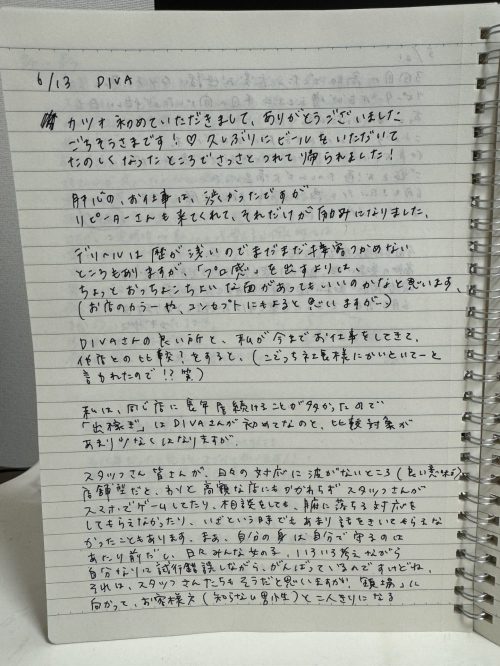 6/13 DIVA
カツオ初めていただきまして、ありがとうございました
ごちそうさまです！♡ 久しぶりにビールをいただいて
たのしくなったところでさっさとつれて帰られました！
肝心の、お仕事は、渋かったですが
リピーターさんも来てくれて、それだけが励みになりました。
デリヘルは歴が浅いのでまだまだ塩梅つかめない
ところもありますが、「プロ感」を出すよりは、
ちょっとおっちょこちょいな面があってもいいのかなと思います。
(お店のカラーや、コンセプトにもよると思いますが…)
DIVAさんの良い所と、私が今までお仕事をしてきて、
他店との比較！をすると、(こごっちネエ良様にかいといてーと
言われたので!? 笑)
私は、同じ店に長年居続けることが多かったので
「出稼ぎ」はDIVAさんが初めてなのと、比較対象が
あまりなくはなりますが、
スタッフさん皆さんが、日々の対応に波がないところ(良い意味で)
店舗型だと、わりと高額な店にもかかわらずスタッフさんが
スマホでゲームしてたり、相談をしても、腑に落ちる対応を
してもらえなかったり、いざという時でもあまり話をきいてもらえな
かったこともあります。まぁ、自分の身は自分で守るのは
あたり前だし、日々みんな女の子、いろいろ考えながら
自分なりに試行錯誤しながら、がんばっているのですけどね。
それは、スタッフさんたちもそうだと思いますが、「現場」に
向かって、お客様え(知らない男性)と二人きりになる